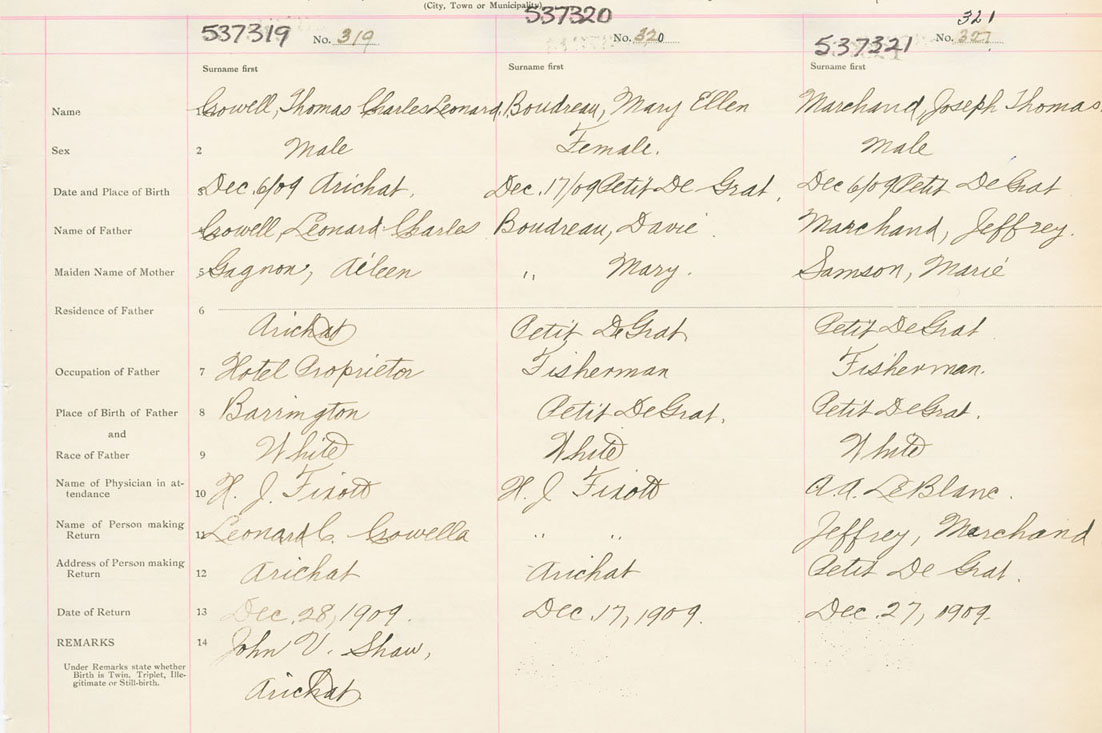 (City, Town or Municipality)
537319 No. 319
537320 No. 320
321
537321 No. 327
Surname first Surname first Surname first
Name 1 Cowell, Thomas Charles Leonard Boudreau, Mary Ellen Marchand, Joseph Thomas
Sex 2 Male Female. Male
Date and Place of Birth 3 Dec. 6/09 Arichat. Dec. 17/09 Petit De Grat. Dec 6/09 Petit De Grat
Name of Father Cowell, Leonard Charles Boudreau, David Marchand, Jeffrey.
Maiden Name of Mother 5 Gagnon, Aileen " Mary. Samson, Marie
Residence of Father 6
Arichat Petit De Grat Petit De Grat
Occupation of Father 7 Hotel Proprietor Fisherman Fisherman.
Place of Birth of Father 8 Barrington Petit De Grat. Petit De Grat.
and
Race of Father 9 White White White
Name of Physician in at-
tendance 10 H. J. Fixott H. J. Fixott A. A. LeBlanc.
Name of Person making
Return 11 Leonard C. " " Jeffrey, Marchand
Address of Person making
Return 12 Arichat Arichat Petit De Grat.
Date of Return 13 Dec. 28, 1909. Dec. 17, 1909. Dec. 27, 1909.
REMARKS 14 John V. Shaw,
Under Remarks state whether
Birth is Twin. Triplet, Ille-
gitimate or Still-birth.
Arichat.